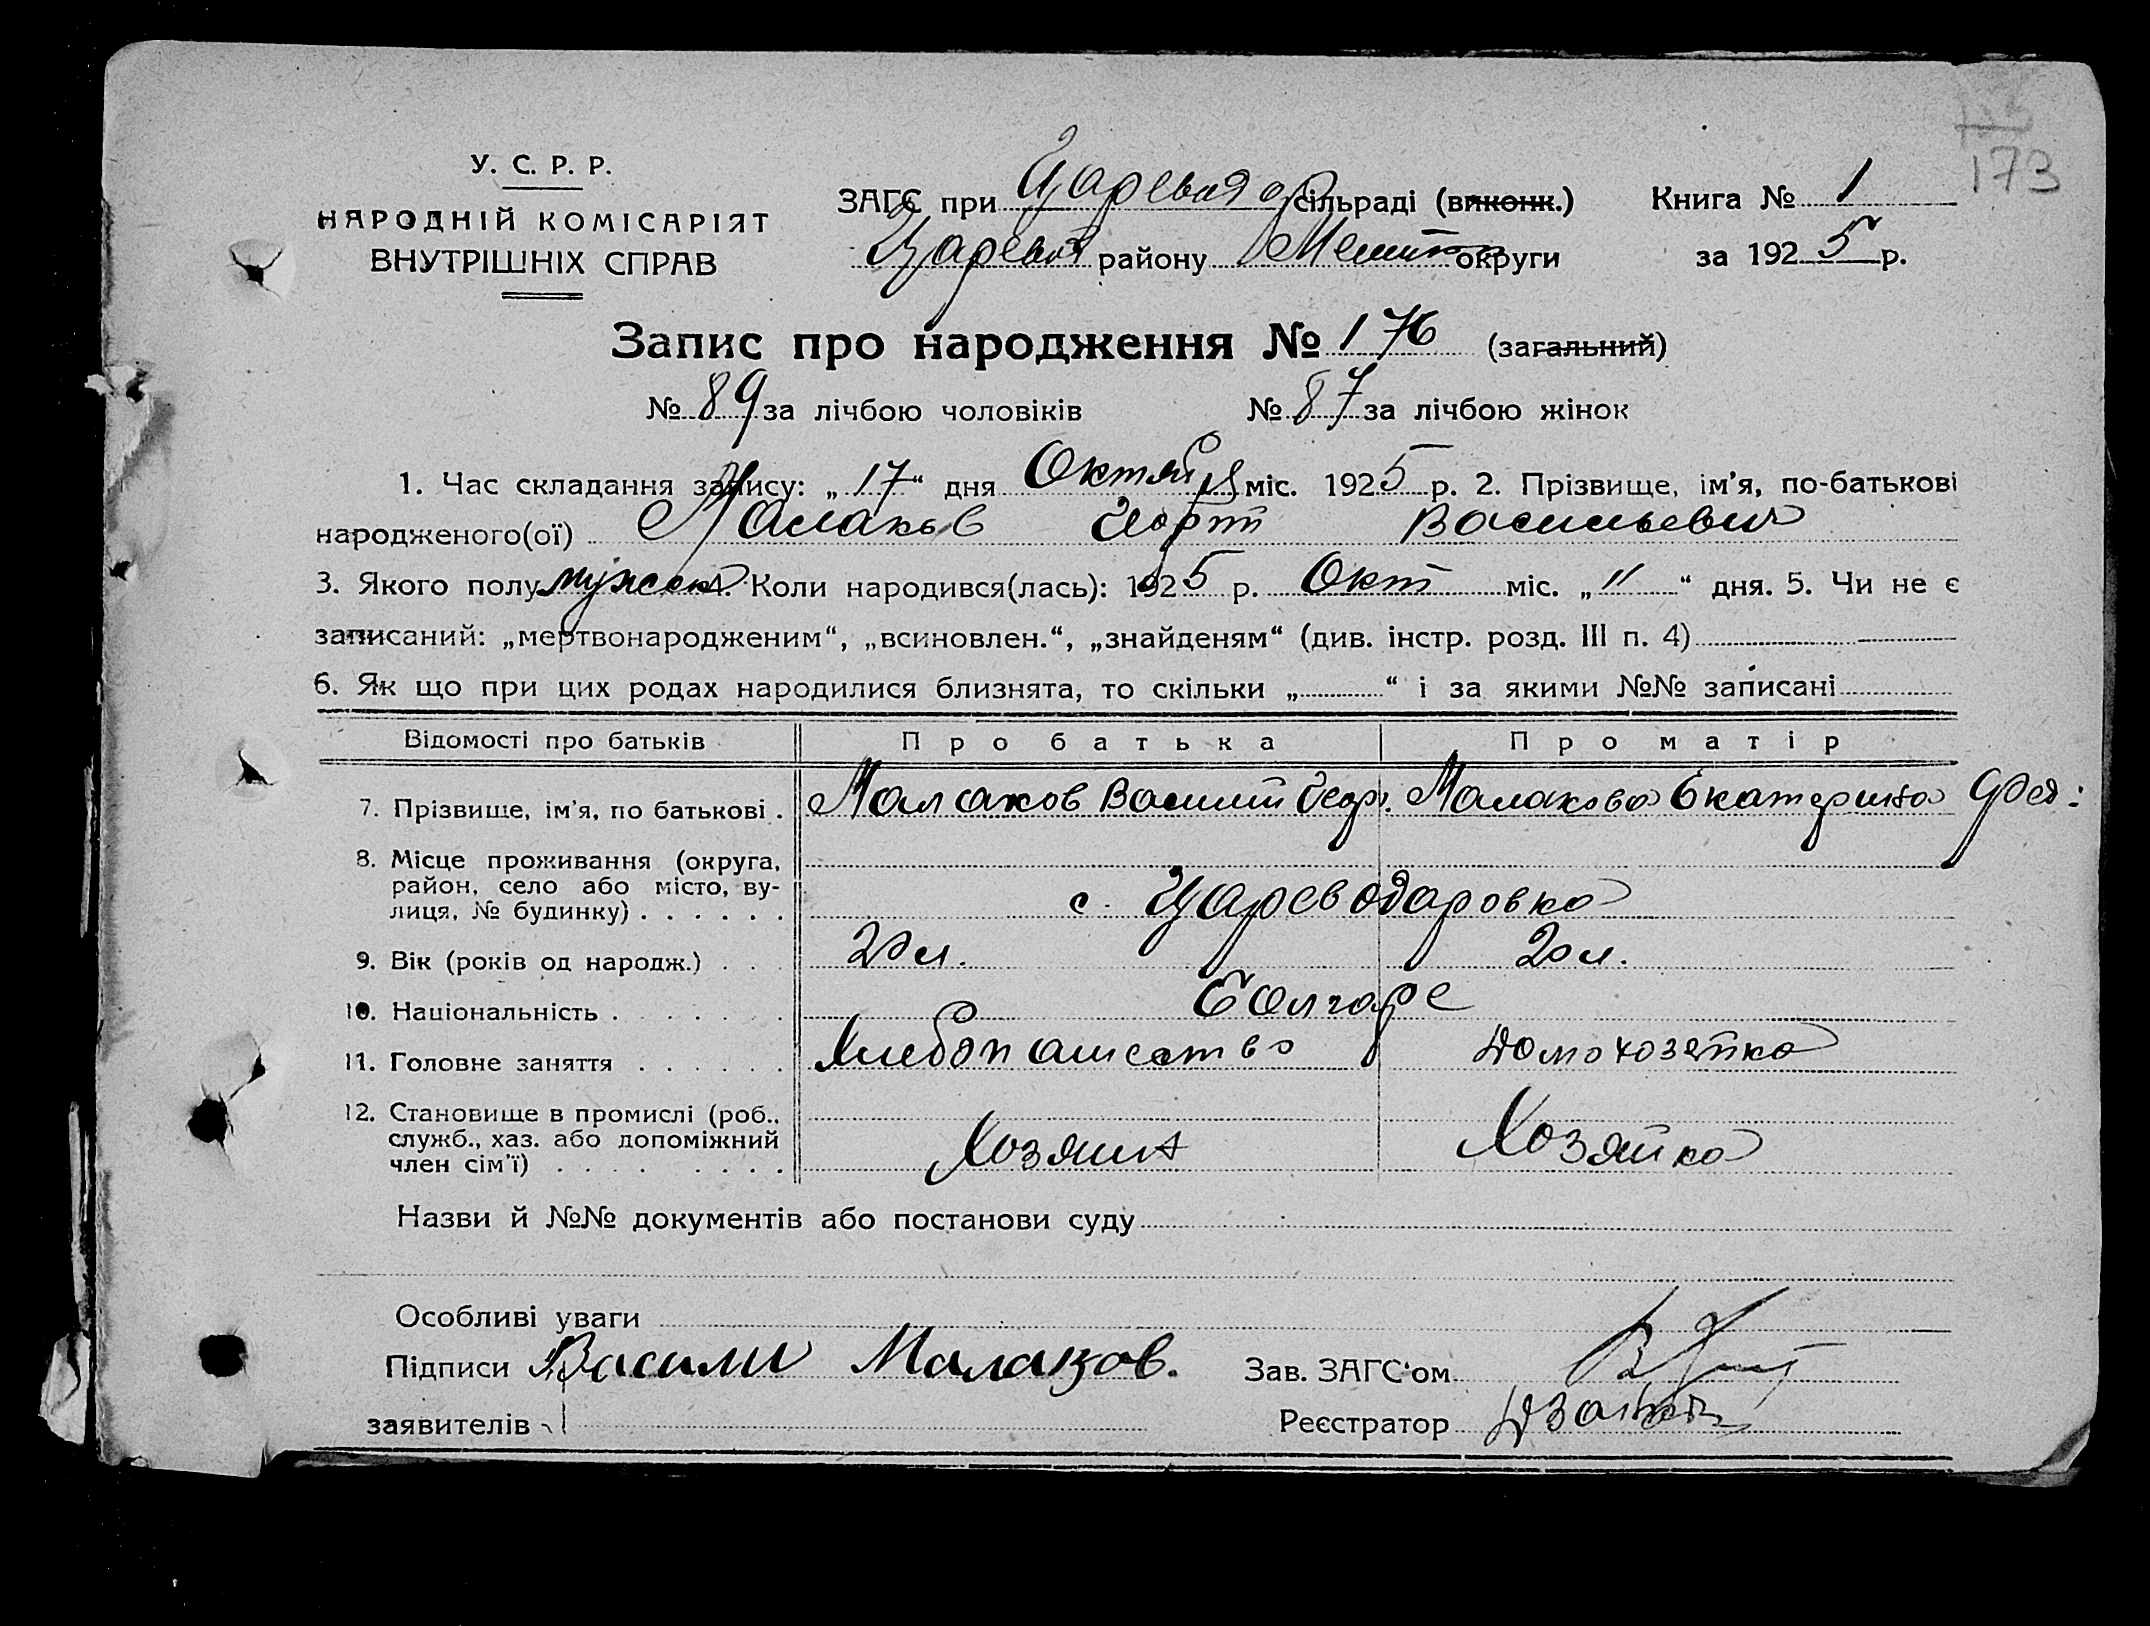 173
У. С. Р. Р.
НАРОДНІЙ КОМІСАРІЯТ
ВНУТРІШНІХ СПРАВ
ЗАГС при Царевод сільраді (виконк.)
Царевод району Мелит округи
Книга № 1
за 1925 р.
Запис про народження № 176 (загальний)
№ 89 за лічбою чоловіків № 87 за лічбою жінок
1. Час складання запису: „17“ дня Октябр міс. 1925 р. 2. Прізвище, ім’я, по-батькові
народженого(ої) Малаков Васильевич
3. Якого полу мужск 4. Коли народився(лась): 1925 р. Окт міс. „11“ дня. 5. Чи не є
записаний: „мертвонародженим“, „всиновлен.“, „знайденям“ (див. інстр. розд. III п. 4)
6. Як що при цих родах народилися близнята, то скільки „ “ і за якими №№ записані
Відомості про батьків Про батька Про матір
7. Прізвище, ім’я, по батькові . Малаков Василий Малакова Екатерина Фед:
8. Місце проживання (округа,
район, село або місто, ву-
лиця, № будинку) . . . . . . с. Цареводаровка
9. Вік (років од народж.) . . . 20 л. 20 л.
10. Національність . . . . . . . Болгаре
11. Головне заняття . . . . . . Хлебопашество Домохозейка
12. Становище в промислі (роб.,
служб., хаз. або допоміжний
член сім’ї) . . . . . . . . Хозяин Хозяйка
Назви й №№ документів або постанови суду
Особливі уваги
Підписи Васили Малаков.
заявителів
Зав. ЗАГС’ом
Реєстратор